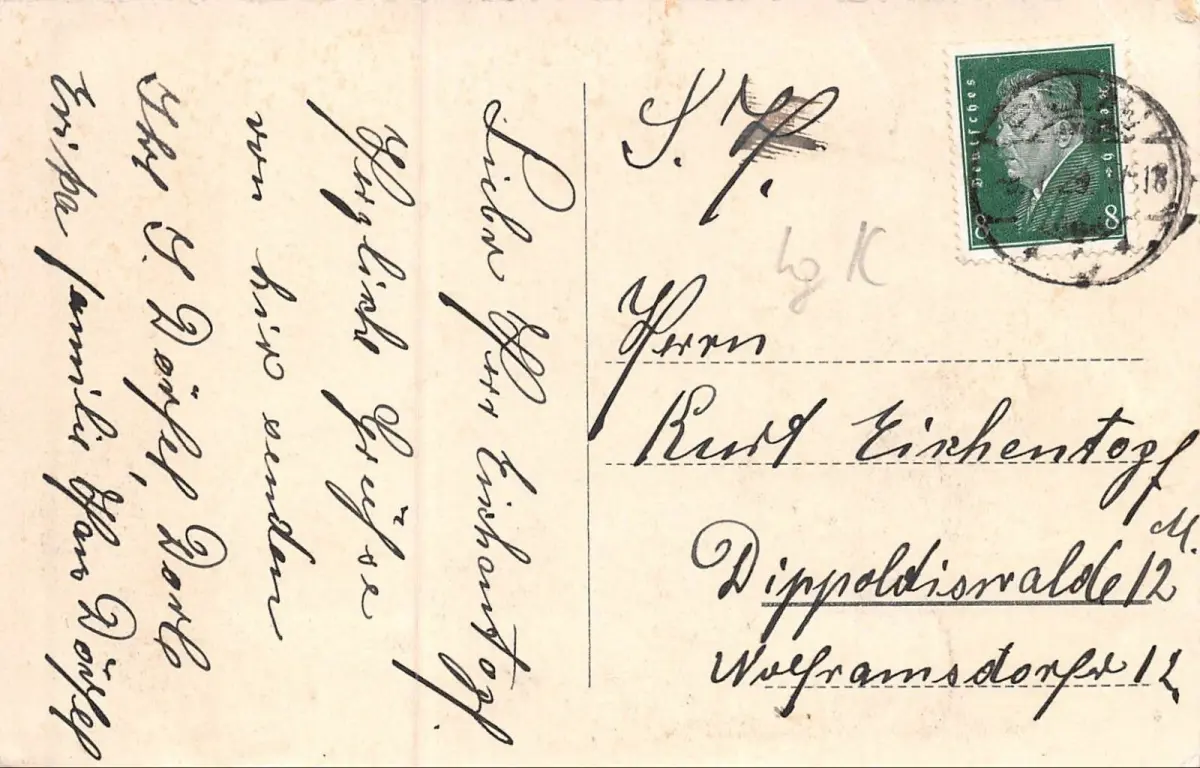 Lieber Herr Eichentopf.
Herzliche Grüße
von hier senden
Ihre J. Dörfel, Dorle
Familie Hans Dörfel
S. H.
Herrn
Kurt Eichentopf
Dippoldiswalde 12
M.
Wolframsdorfer 12
Lg K
Deutsches
8
8
29
18